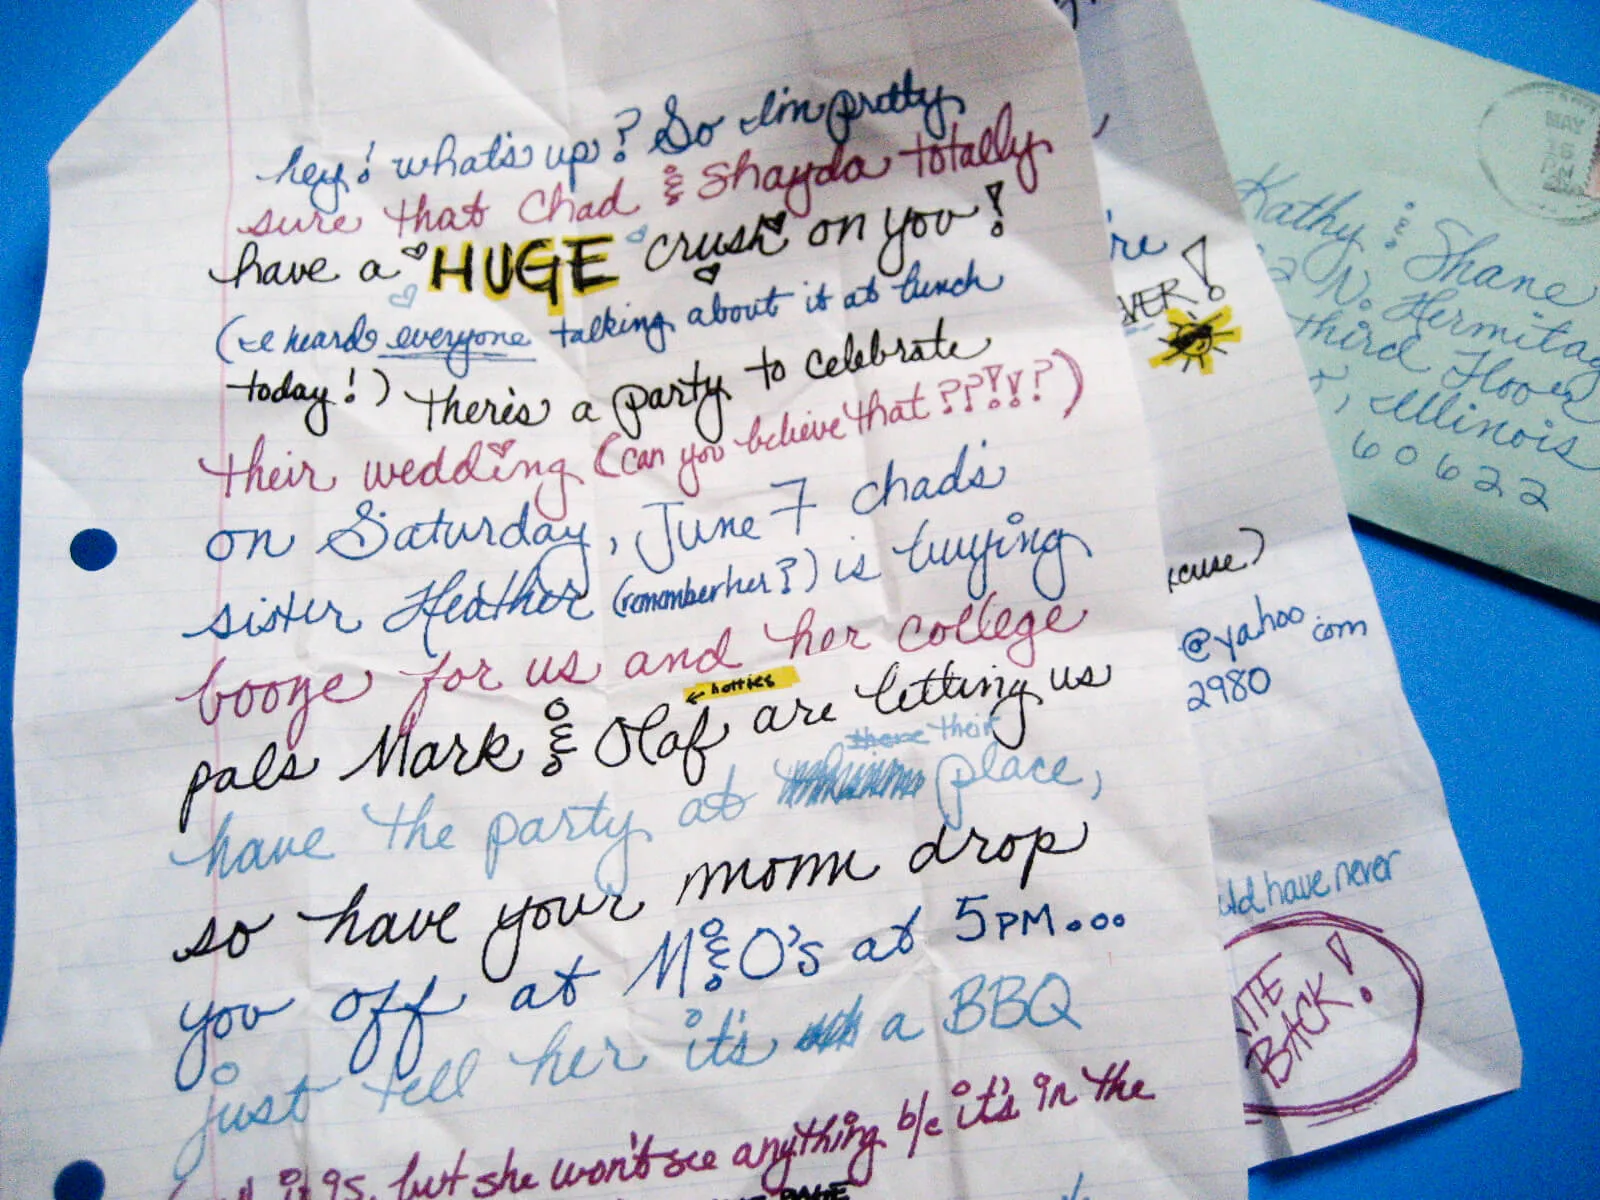 hey! what's up? So I'm pretty
sure that Chad & Shayda totally
have a HUGE crush on you!
(I heard everyone talking about it at lunch
today!) There's a party to celebrate
their wedding (can you believe that ??!!?)
on Saturday, June 7 chad's
sister Heather (remember her?) is buying
booze for us and her college
pals Mark & Olaf are letting us
← hotties
have the party at their place,
so have your mom drop
you off at M&O's at 5PM...
just tell her it's a BBQ
it is, but she won't see anything b/c it's in the
PAGE
're
VER!
xcuse)
@yahoo.com
2980
uld have never
ITE
BACK!
Kathy & Shane
2 N. Hermitag
Third Floor
, Illinois
60622
MAY
PM